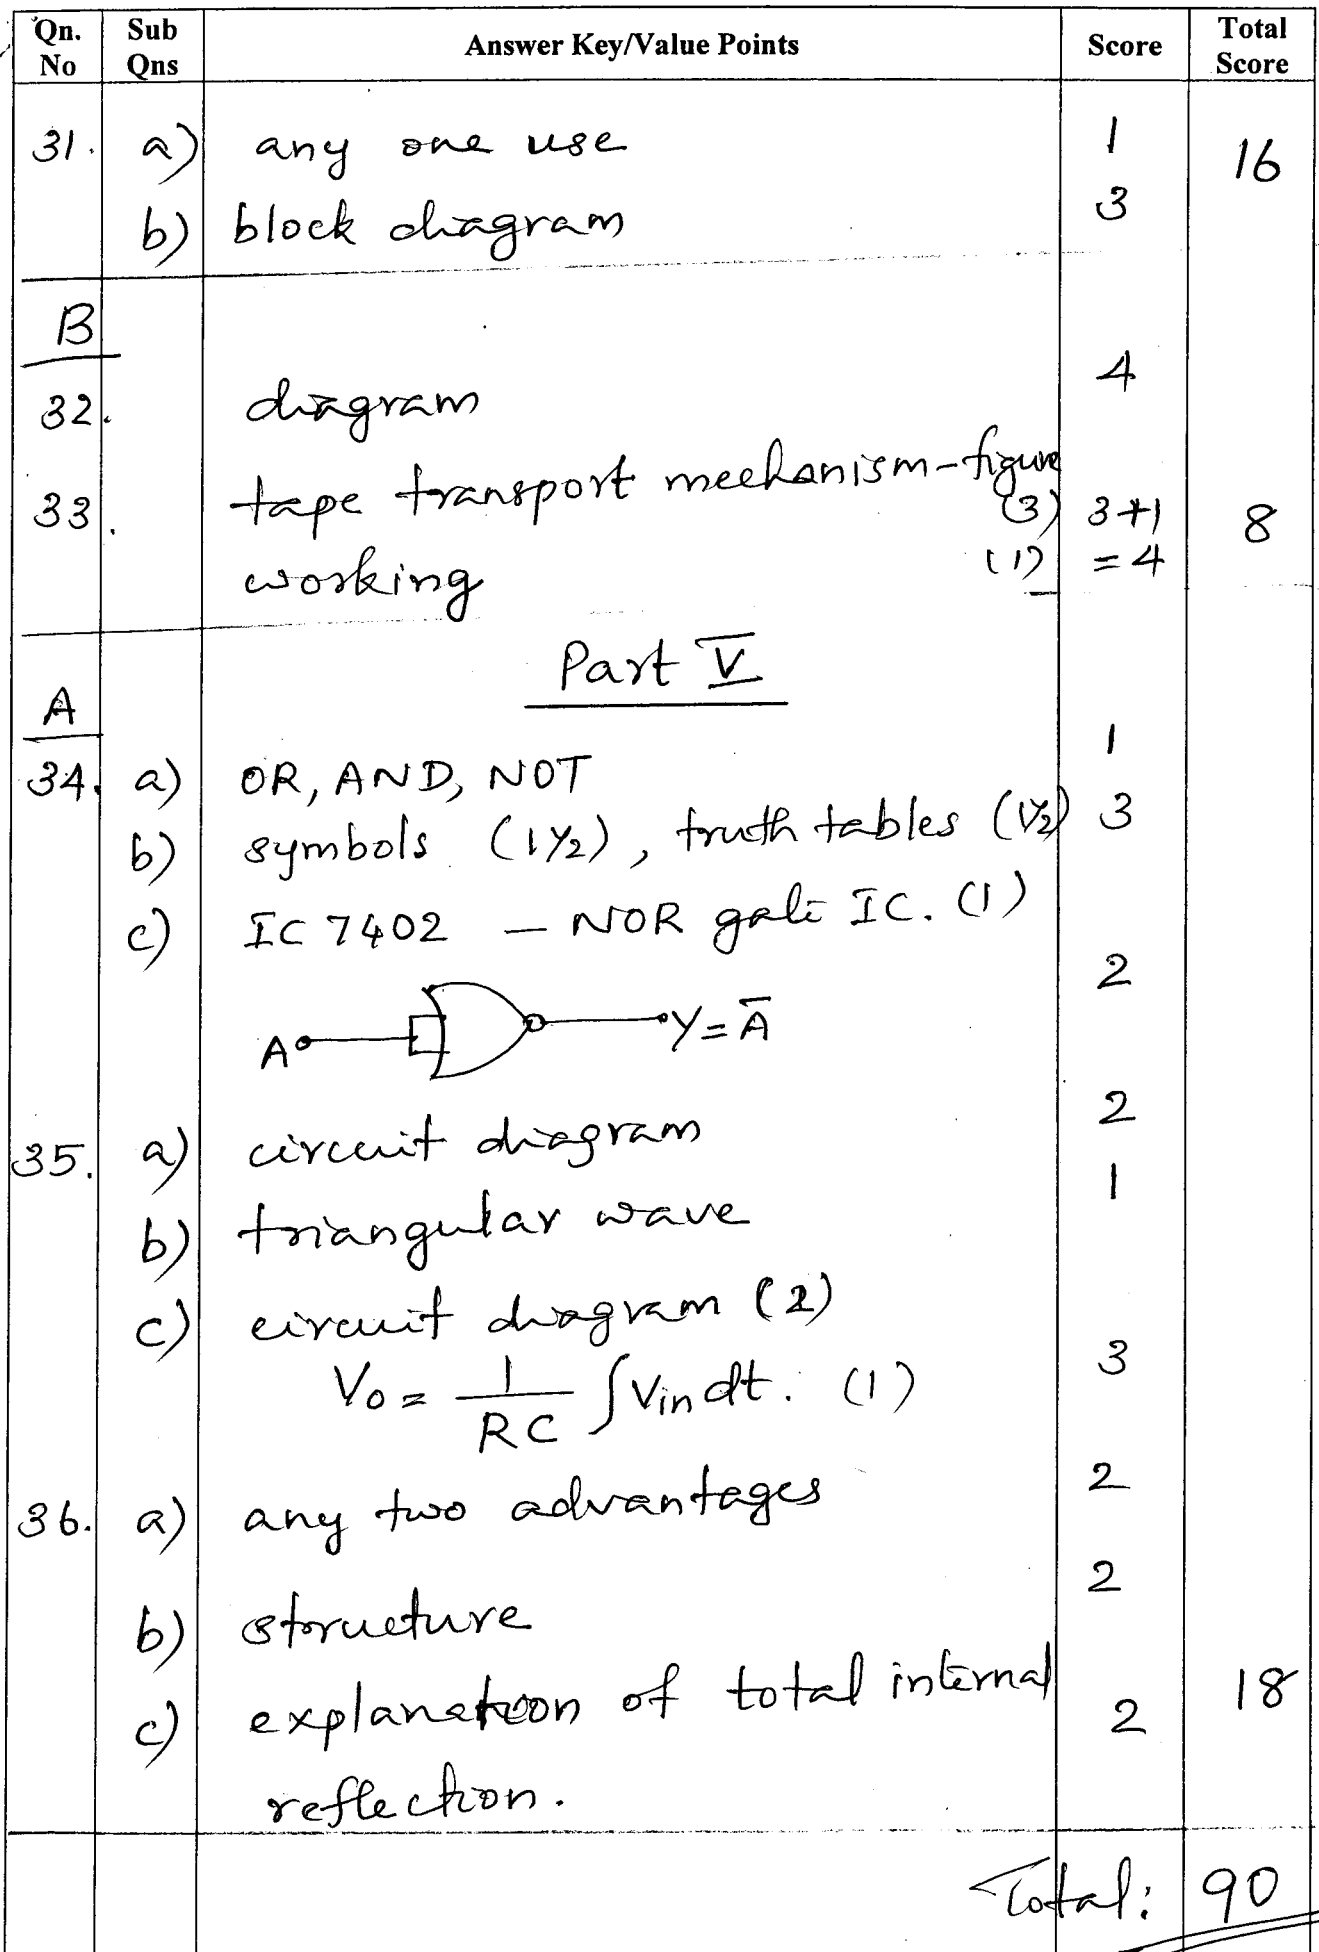 Qn. No | Sub Qns | Answer Key/Value Points | Score | Total Score
31. a) any one use 1 16
b) block diagram 3
B
32. diagram 4
33. tape transport mechanism-figure (3) 3+1 8
working (1) =4
Part V
A
34. a) OR, AND, NOT 1
b) symbols (1½), truth tables (1½) 3
c) IC 7402 – NOR gate IC. (1)
2
A Y=Ā
35. a) circuit diagram 2
b) triangular wave 1
c) circuit diagram (2)
Vo = 1/RC ∫Vin dt. (1) 3
36. a) any two advantages 2
b) structure 2
c) explanation of total internal 2 18
reflection.
Total: 90